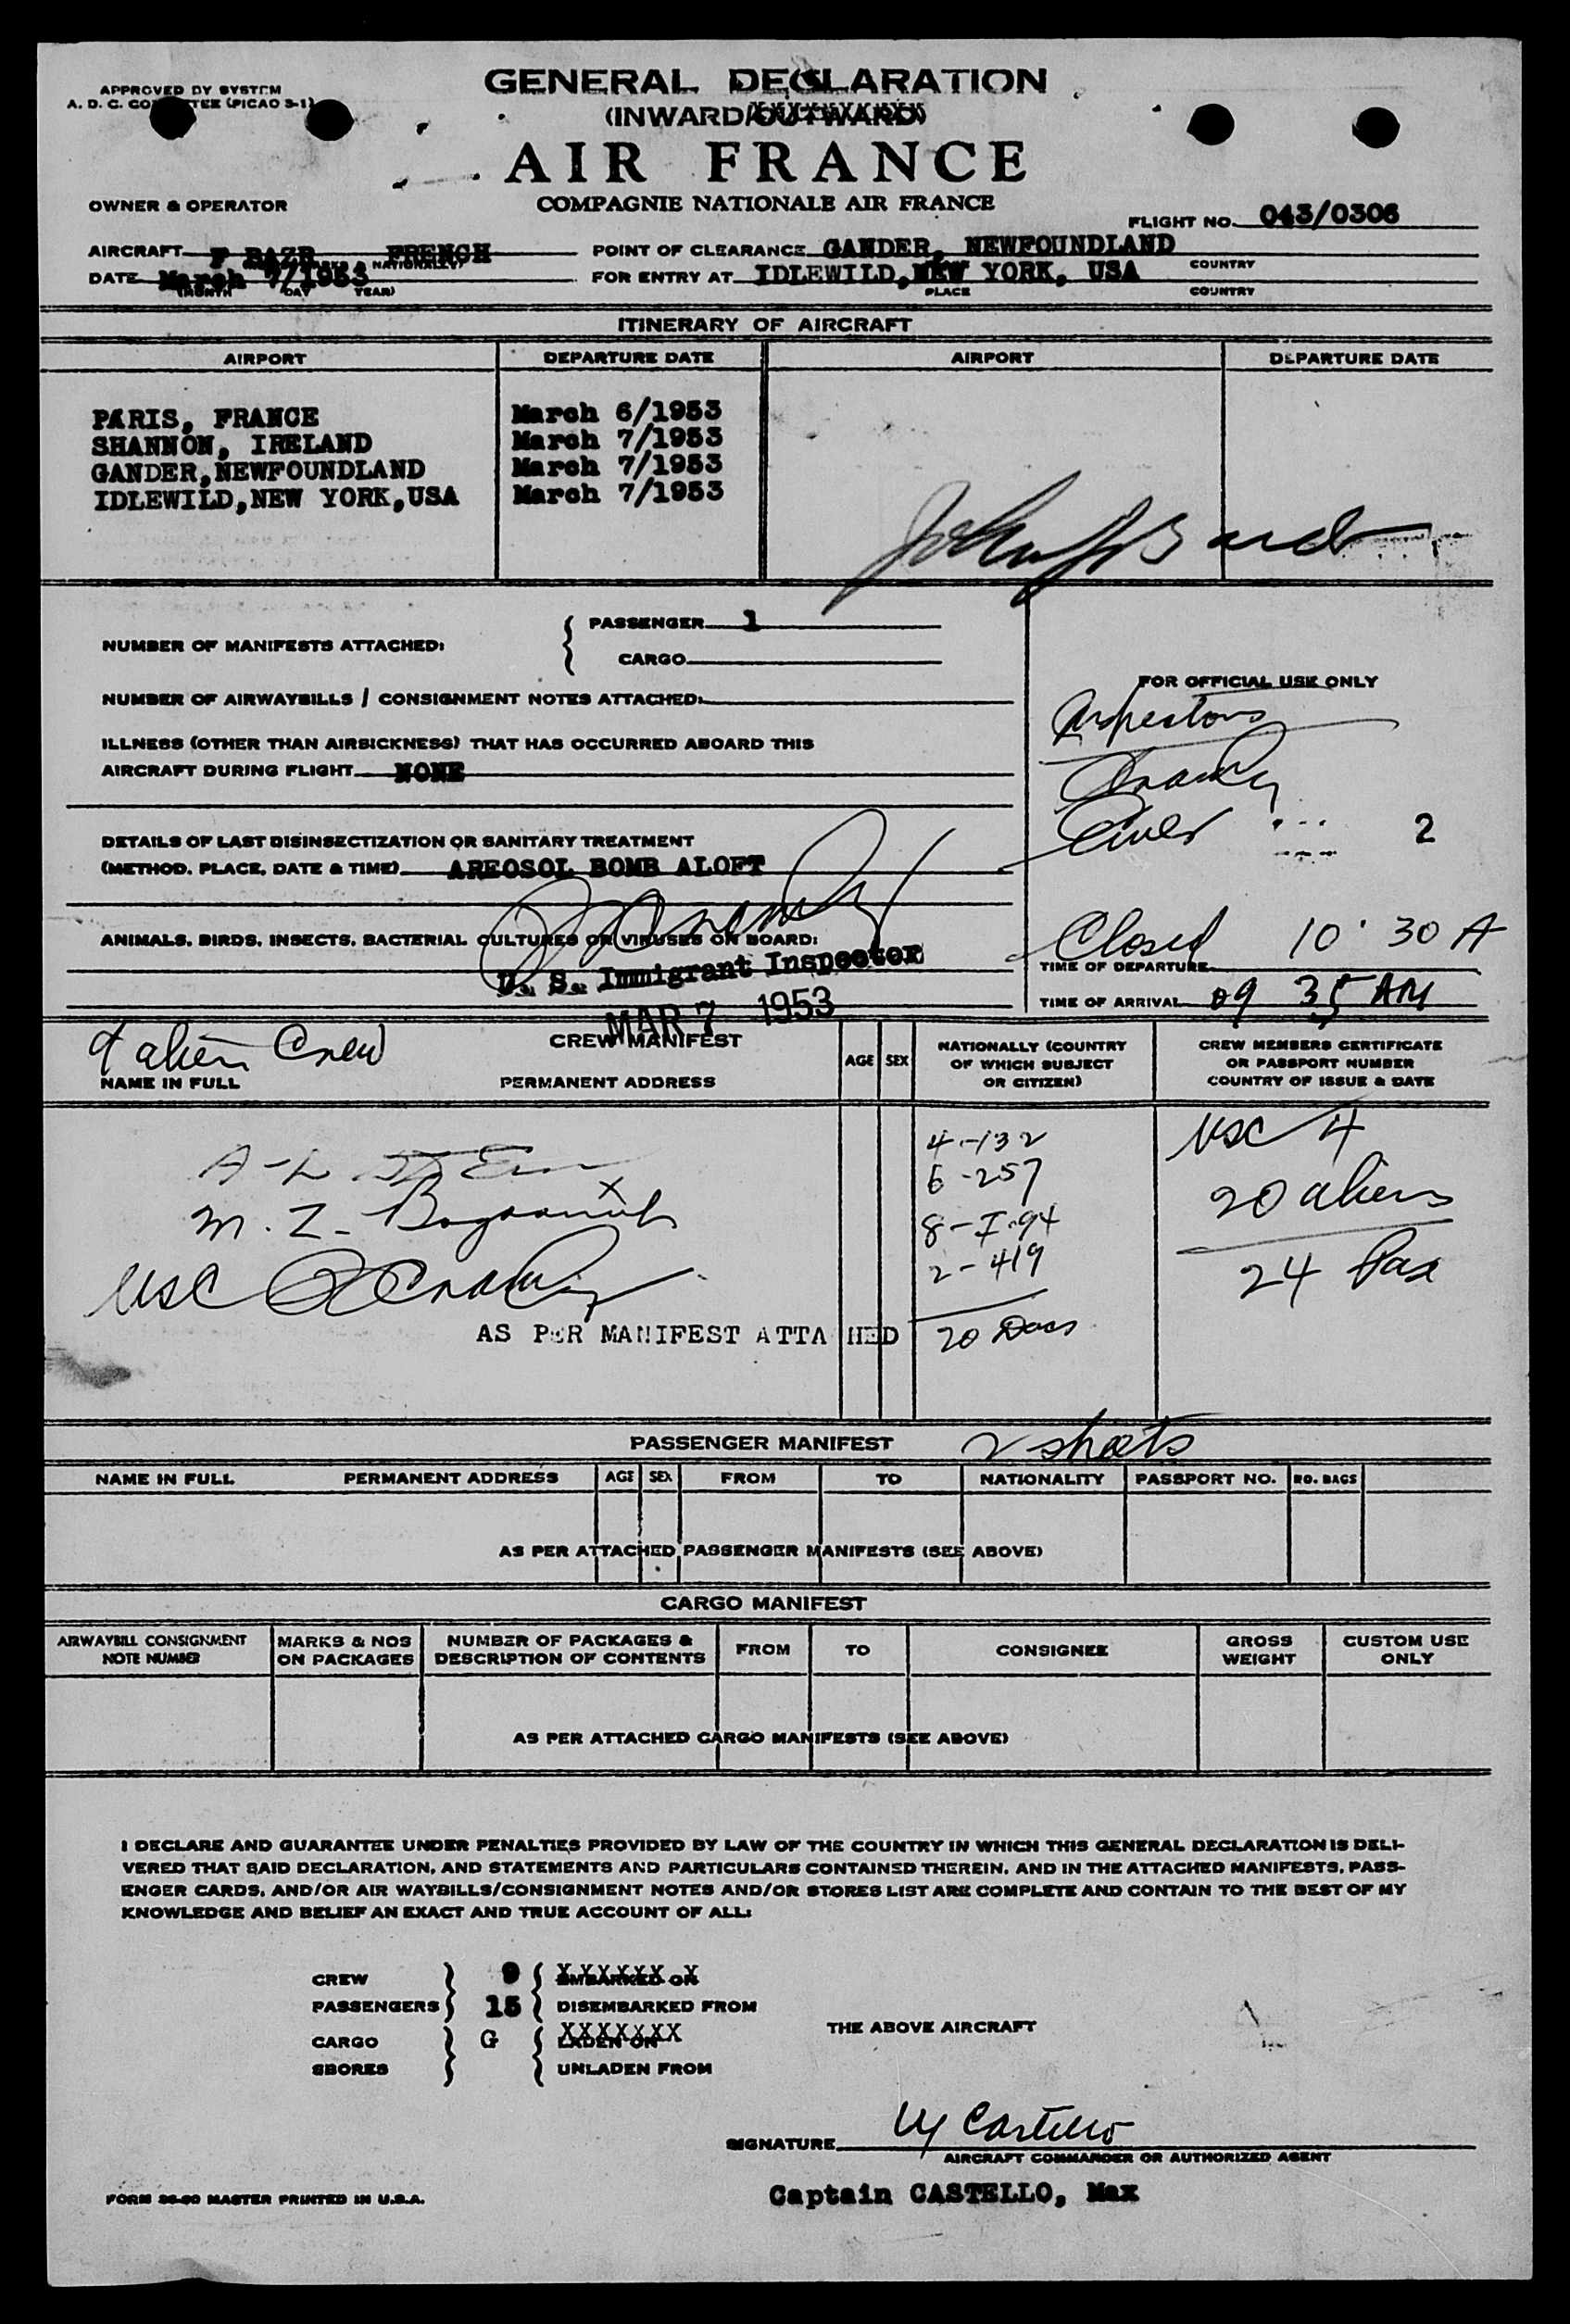 APPROVED BY SYSTEM
A. D. C. (PICAO S-1)
GENERAL DECLARATION
(INWARD/OUTWARD)
AIR FRANCE
COMPAGNIE NATIONALE AIR FRANCE
OWNER & OPERATOR
FLIGHT NO. 043/0306
AIRCRAFT F BAZR FRENCH
POINT OF CLEARANCE GANDER, NEWFOUNDLAND
COUNTRY
DATE March 7/1953
(MONTH DAY YEAR)
FOR ENTRY AT IDLEWILD, NEW YORK, USA
PLACE COUNTRY
ITINERARY OF AIRCRAFT
AIRPORT DEPARTURE DATE AIRPORT DEPARTURE DATE
PARIS, FRANCE March 6/1953
SHANNON, IRELAND March 7/1953
GANDER,NEWFOUNDLAND March 7/1953
IDLEWILD,NEW YORK,USA March 7/1953
NUMBER OF MANIFESTS ATTACHED:
PASSENGER 1
CARGO
NUMBER OF AIRWAYBILLS / CONSIGNMENT NOTES ATTACHED:
ILLNESS (OTHER THAN AIRSICKNESS) THAT HAS OCCURRED ABOARD THIS
AIRCRAFT DURING FLIGHT NONE
DETAILS OF LAST DISINSECTIZATION OR SANITARY TREATMENT
(METHOD, PLACE, DATE & TIME) AREOSOL BOMB ALOFT
ANIMALS, BIRDS, INSECTS, BACTERIAL CULTURES OR VIRUSES ON BOARD:
U. S. Immigrant Inspector
MAR 7 1953
FOR OFFICIAL USE ONLY
Inspectors
2
Closed 10 30 A
TIME OF DEPARTURE
TIME OF ARRIVAL 09 35 AM
alien Crew
CREW MANIFEST
NAME IN FULL PERMANENT ADDRESS AGE SEX
NATIONALLY (COUNTRY
OF WHICH SUBJECT
OR CITIZEN)
CREW MEMBERS CERTIFICATE
OR PASSPORT NUMBER
COUNTRY OF ISSUE & DATE
4-132
6-257
8-I-94
2-419
20 Docs
USC 4
20 aliens
24 Pax
M. Z.
USC
AS PER MANIFEST ATTA HED
PASSENGER MANIFEST 2 sheets
NAME IN FULL PERMANENT ADDRESS AGE SEX FROM TO NATIONALITY PASSPORT NO. NO. BAGS
AS PER ATTACHED PASSENGER MANIFESTS (SEE ABOVE)
CARGO MANIFEST
AIRWAYBILL CONSIGNMENT
NOTE NUMBER
MARKS & NOS
ON PACKAGES
NUMBER OF PACKAGES &
DESCRIPTION OF CONTENTS
FROM TO CONSIGNEE
GROSS
WEIGHT
CUSTOM USE
ONLY
AS PER ATTACHED CARGO MANIFESTS (SEE ABOVE)
I DECLARE AND GUARANTEE UNDER PENALTIES PROVIDED BY LAW OF THE COUNTRY IN WHICH THIS GENERAL DECLARATION IS DELI-
VERED THAT SAID DECLARATION, AND STATEMENTS AND PARTICULARS CONTAINED THEREIN, AND IN THE ATTACHED MANIFESTS, PASS-
ENGER CARDS, AND/OR AIR WAYBILLS/CONSIGNMENT NOTES AND/OR STORES LIST ARE COMPLETE AND CONTAIN TO THE BEST OF MY
KNOWLEDGE AND BELIEF AN EXACT AND TRUE ACCOUNT OF ALL:
CREW 9 EMBARKED ON
PASSENGERS 15 DISEMBARKED FROM
THE ABOVE AIRCRAFT
CARGO G LADEN ON
SBORES UNLADEN FROM
SIGNATURE M Castello
AIRCRAFT COMMANDER OR AUTHORIZED AGENT
Captain CASTELLO, Max
FORM 36-60 MASTER PRINTED IN U.S.A.